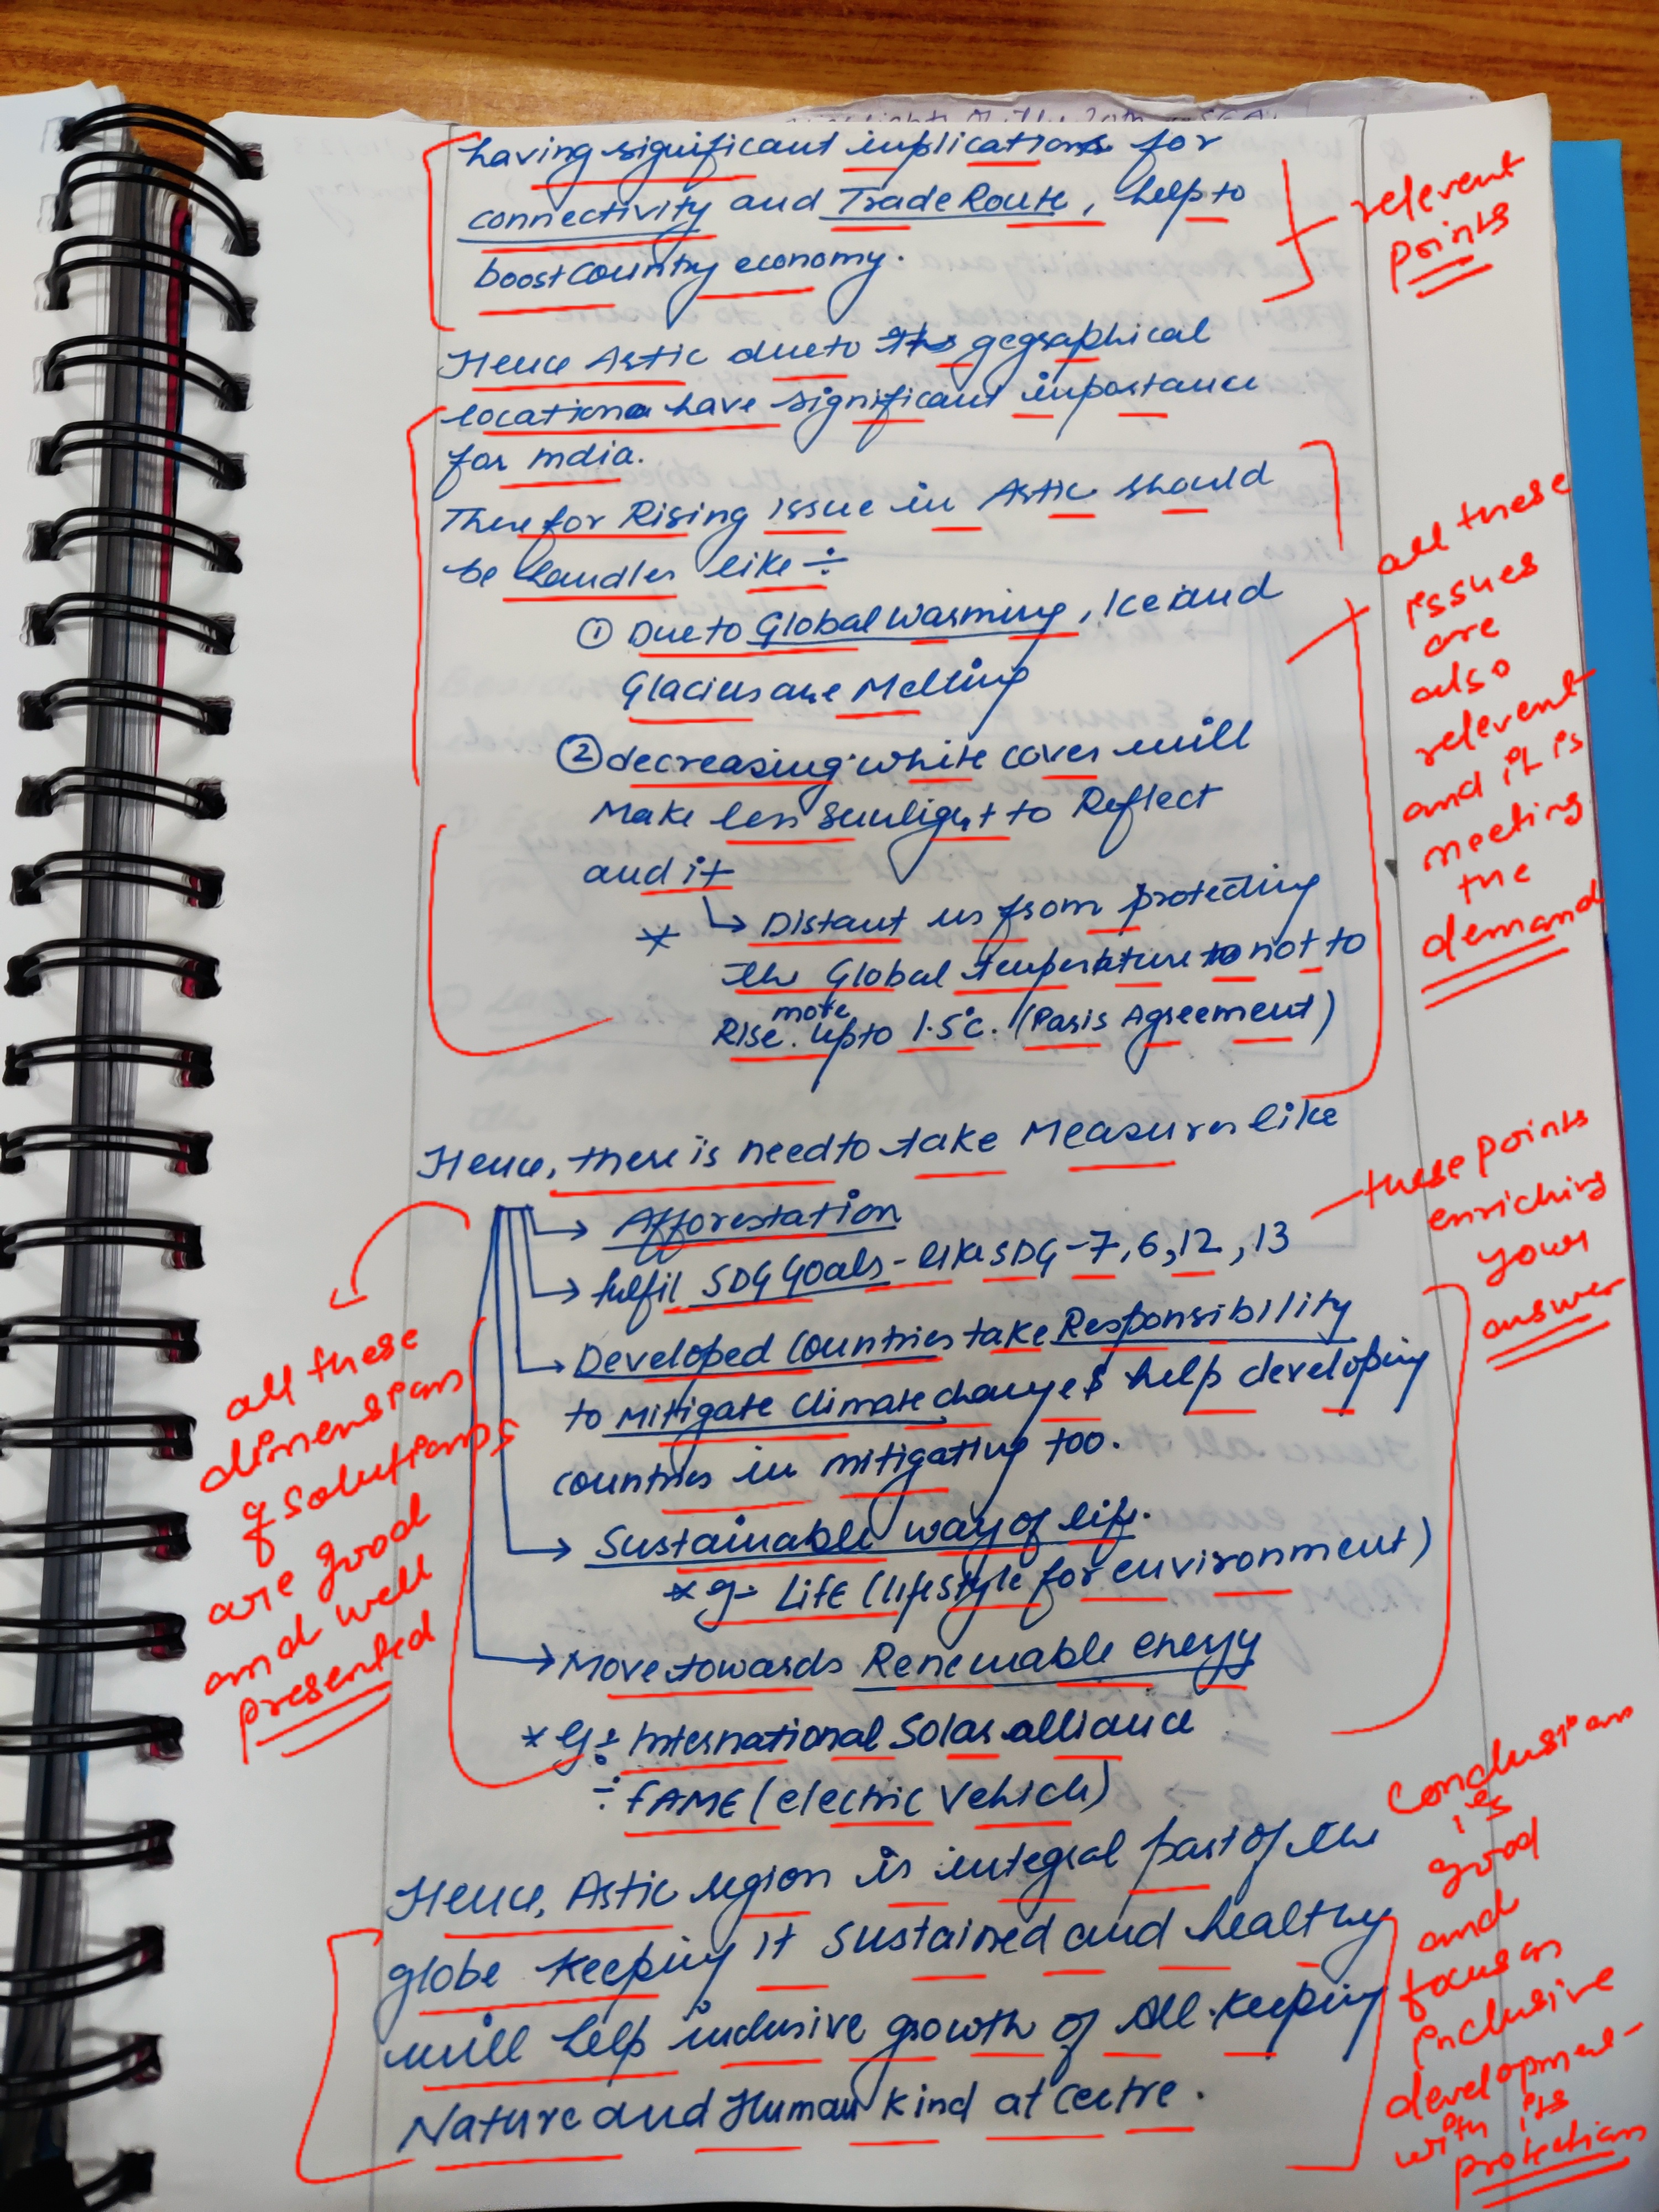 having significant implications for
connectivity and Trade Route, help to
boost country economy.
relevent
points
Hence Arctic due to its gegraphical
location have significant importance
for india.
Therefor Rising issue in Arctic should
be handles like ÷
① Due to Global Warming, Ice and
Glaciers are Melting
② decreasing white cover will
Make less sunlight to Reflect
and it
* ↳ Distant us from protecting
the Global temperature to not to
Rise more upto 1.5°c. (Paris Agreement)
all these
issues
are
also
relevent
and it is
meeting
the
demand
Hence, there is need to take Measures like
→ Afforestation
→ fulfil SDG Goals - like SDG - 7, 6, 12, 13
→ Developed Countries take Responsibility
to Mitigate Climate change & help developing
countries in mitigating too.
→ Sustainable way of life.
* eg - LiFE (lifestyle for environment)
→ Move towards Renewable energy
* eg ÷ International Solar alliance
÷ FAME (electric Vehicle)
these points
enriching
your
answer
all these
dimensions
of solutions
are good
and well
presented
Hence, Arctic region is integral part of the
globe keeping it sustained and healthy
will help inclusive growth of All. Keeping
Nature and Human kind at centre.
Conclusion
is
good
and
focus on
inclusive
development
with its
protection